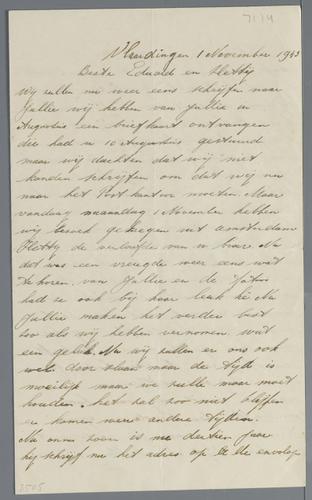 7114
Vlaardingen 1 November 1943
Beste Eduard en Hetty
Wij zullen nu weer eens schrijfen naar
Jullie wij hebben van Jullie in
Augustus een briefkaart ontvangen
die had u 10 Augustus gestuurd
maar wij dachten dat wij niet
konden schrijfen om dat wij nu
naar het Post kantoor moeten. Maar
vandaag maandag 1 November hebben
wij bezoek gekregen uit Amsterdam
Hetty de verloofde van u broer Nu
dat was een vreugde weer eens wat
te horen van Jullie en de
had er ook bij haar Nu
Jullie maken het verder best
zoo als wij hebben vernomen wat
een geluk. Nu wij zullen er ons ook
wel door slaan maar de tijd is
moeilijk maar we zulle maar moet
houden. het zal zoo niet blijfen
er komen weer andere tijden.
Nu onzen zoon is nu dertien Jaar
hij schrijft nu het adres op de envelop
3505